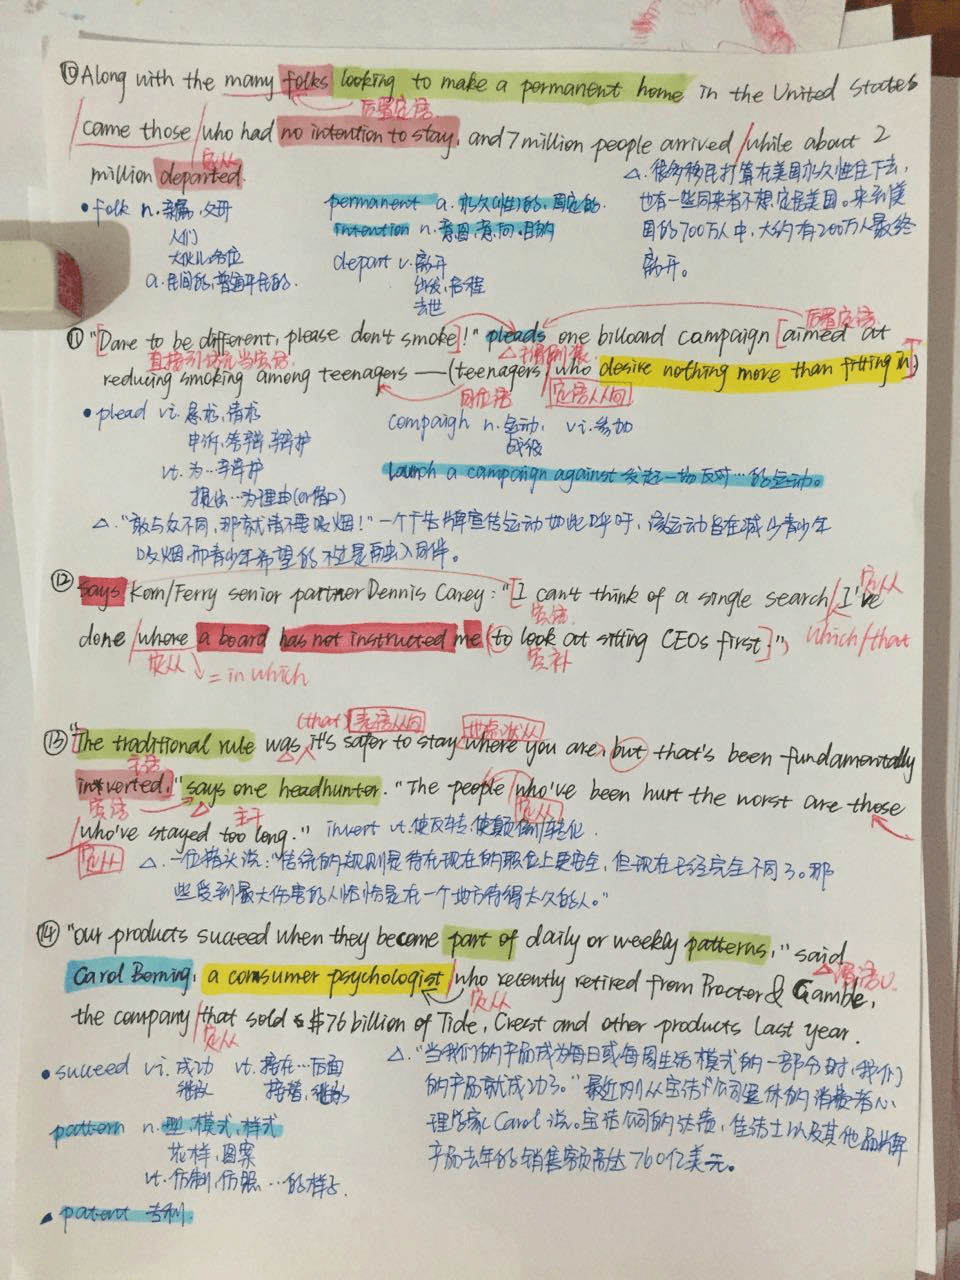 ⑩ Along with the many folks looking to make a permanent home in the United States
后置定语
came those who had no intention to stay, and 7 million people arrived while about 2
定从
million departed.
△. 很多移民打算在美国永久性住下去,
• folk n. 亲属,父母
permanent a. 永久(性)的,固定的
也有一些同来者不想定居美国。来到美
人们
intention n. 意图,意向,目的
国的700万人中,大约有200万人最终
大伙儿,各位
depart v. 离开
离开。
a. 民间的,普通平民的.
出发,启程
去世
后置定语
⑪ "[Dare to be different, please don't smoke]!" pleads one billoard campaign [aimed at
直接引语充当宾语
reducing smoking among teenagers —(teenagers who desire nothing more than fitting in)]
同位语
定语从句
• plead vi. 恳求,请求
campaign n. 运动, vi. 参加
申诉,答辩,辩护
战役
vt. 为…辩护
launch a campaign against 发起一场反对…的运动。
提出…为理由(or借口)
△. "敢与众不同,那就请不要吸烟!" 一个广告牌宣传运动如此呼吁,该运动旨在减少青少年
吸烟,而青少年希望的不过是融入同伴。
⑫ Says Korn/Ferry senior partner Dennis Carey: "[I can't think of a single search I've
定从
宾语
done where a board has not instructed me (to look at sitting CEOs first]."
which/that
定从
= in which
宾补
(that) 表语从句
地点状从
⑬ "The traditional rule was it's safer to stay where you are, but that's been fundamentally
主语
inverted." says one headhunter. "The people who've been hurt the worst are those
宾语
主干
定从
who've stayed too long."
invert vt. 使反转,使颠倒,转化.
定从
△. 一位猎头说:"传统的规则是待在现在的职位上更安全,但现在已经完全不同了。那
些受到最大伤害的人恰恰是在一个地方待得太久的人。"
⑭ "Our products succeed when they become part of daily or weekly patterns," said
Carol Berning, a consumer psychologist who recently retired from Procter & Gamble,
定从
the company that sold $76 billion of Tide, Crest and other products last year.
定从
• succeed vi. 成功 vt. 接在…后面
△. "当我们的产品成为每日或每周生活模式的一部分时,我们
继承
接替,继承
的产品就成功了。" 最近刚从宝洁公司退休的消费者心
pattern n. 型,模式,样式
理学家Carol说。宝洁公司的汰渍,佳洁士以及其他品牌
花样,图案
产品去年的销售额高达760亿美元。
vt. 仿制,仿照…的样子.
patent 专利